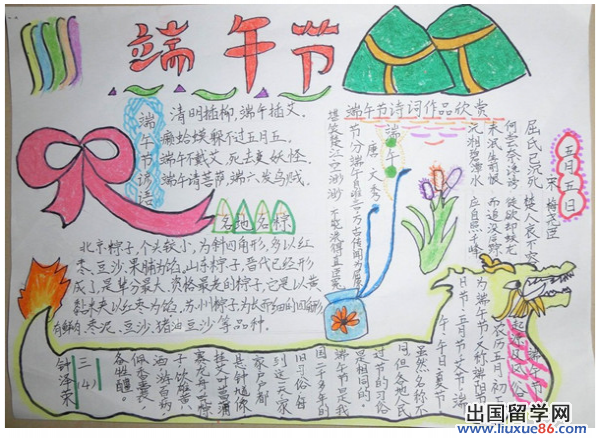 端午节
端午节谚语
清明插柳，端午插艾。
癞蛤蟆躲不过五月五。
端午不戴艾，死去变妖怪。
端午请菩萨，端六发乌贼。
各地名粽
北京粽子，个头较小，为斜四角形，多以红
枣、豆沙、果脯为馅。山东粽子，晋代已经形
成了，是年分最大、资格最老的粽子，它是以黄
黏米夹以红枣为馅。苏州粽子为长形细的四角形，
有鲜肉、枣泥、豆沙、猪油豆沙等品种。
端午节诗词作品欣赏
五月五日
宋 梅尧臣
屈氏已沉死，楚人哀不容。
何尝奈谗谤，徒欲却蛟龙。
未泯生前恨，而追没后踪。
沅湘碧潭水，应自照千峰。
端午
唐 文秀
节分端午自谁言，万古传闻为屈原。
堪笑楚江空渺渺，不能洗得直臣冤。
端午节
起源风俗
农历五月初五
为端午节，又称端阳节
午日节、五月节、夏节
虽然名称不
同，但各地人民
过节的习俗
是相同的。
端午节是我
国二千多年的
旧习俗，每
到这一天，家
家户户都
悬钟馗像，
挂艾叶菖蒲
赛龙舟，吃粽
子，饮雄黄
酒，游百病，
佩香囊，
备牲醴。
三(4)
钟泽荣
出国留学网
www.liuxue86.com